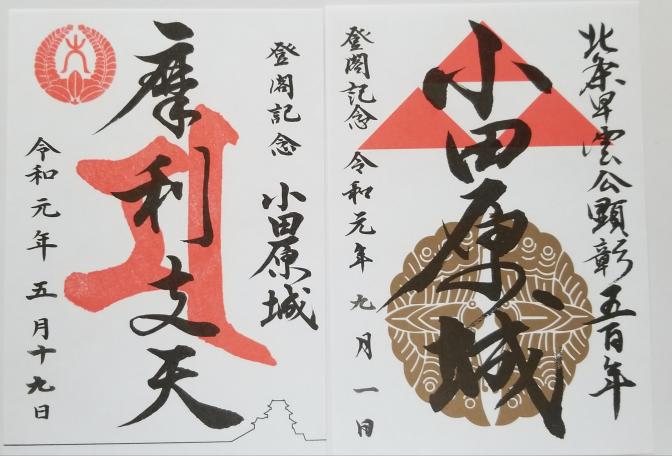 登閣記念
小田原城
摩利支天
令和元年 五月十九日
北条早雲公顕彰五百年
小田原城
登閣記念 令和元年 九月一日